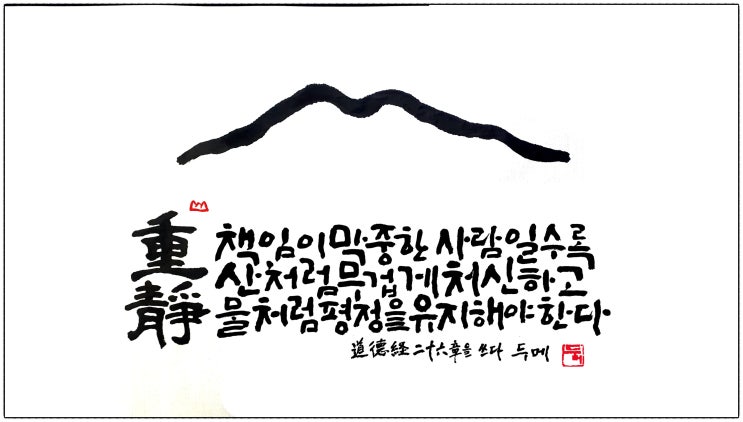 重靜
책임이 막중한 사람일수록
산처럼 무겁게 처신하고
물처럼 평정을 유지해야 한다
道德経 二十六章을 쓰다 두메